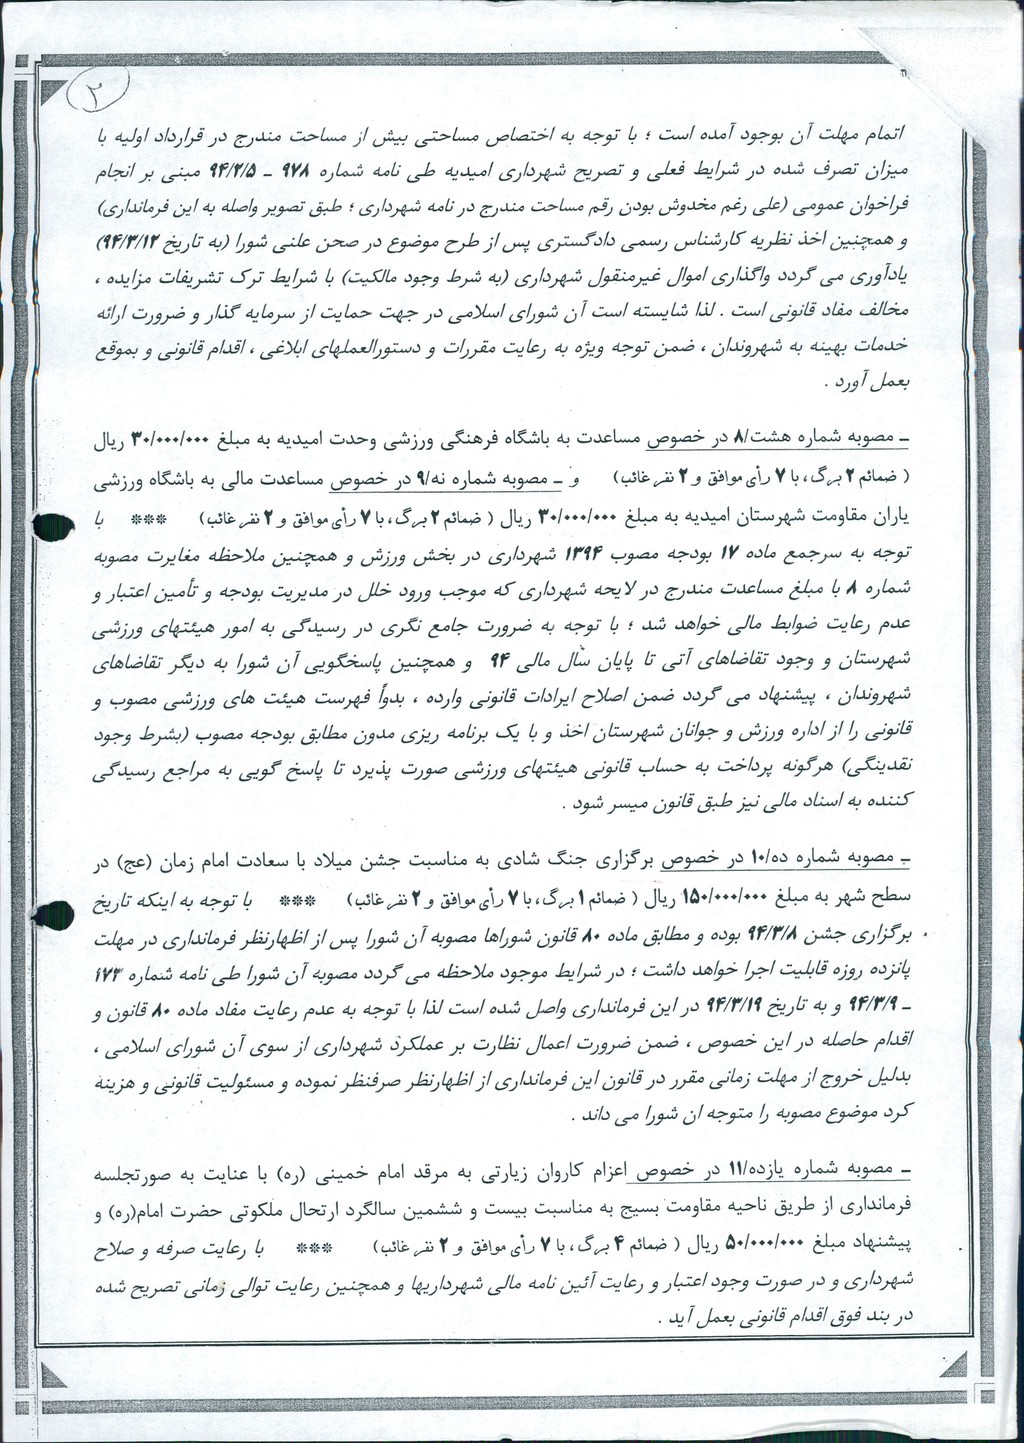 ۲
اتمام مهلت آن بوجود آمده است ؛ با توجه به اختصاص مساحتی بیش از مساحت مندرج در قرارداد اولیه با
میزان تصرف شده در شرایط فعلی و تصریح شهرداری امیدیه طی نامه شماره ۹۷۸ - ۹۴/۲/۵ مبنی بر انجام
فراخوان عمومی (علی رغم مخدوش بودن رقم مساحت مندرج در نامه شهرداری ؛ طبق تصویر واصله به این فرمانداری)
و همچنین اخذ نظریه کارشناس رسمی دادگستری پس از طرح موضوع در صحن علنی شورا (به تاریخ ۹۴/۳/۱۲)
یادآوری می گردد واگذاری اموال غیرمنقول شهرداری (به شرط وجود مالکیت) با شرایط ترک تشریفات مزایده ،
مخالف مفاد قانونی است . لذا شایسته است آن شورای اسلامی در جهت حمایت از سرمایه گذار و ضرورت ارائه
خدمات بهینه به شهروندان ، ضمن توجه ویژه به رعایت مقررات و دستورالعملهای ابلاغی ، اقدام قانونی و بموقع
بعمل آورد .
- مصوبه شماره هشت/۸ در خصوص مساعدت به باشگاه فرهنگی ورزشی وحدت امیدیه به مبلغ ۳۰/۰۰۰/۰۰۰ ریال
( ضمائم ۲ برگ، با ۷ رأی موافق و ۲ نفر غائب) و - مصوبه شماره نه/۹ در خصوص مساعدت مالی به باشگاه ورزشی
یاران مقاومت شهرستان امیدیه به مبلغ ۳۰/۰۰۰/۰۰۰ ریال ( ضمائم ۲ برگ، با ۷ رأی موافق و ۲ نفر غائب) *** با
توجه به سرجمع ماده ۱۷ بودجه مصوب ۱۳۹۴ شهرداری در بخش ورزش و همچنین ملاحظه مغایرت مصوبه
شماره ۸ با مبلغ مساعدت مندرج در لایحه شهرداری که موجب ورود خلل در مدیریت بودجه و تأمین اعتبار و
عدم رعایت ضوابط مالی خواهد شد ؛ با توجه به ضرورت جامع نگری در رسیدگی به امور هیئتهای ورزشی
شهرستان و وجود تقاضاهای آتی تا پایان سال مالی ۹۴ و همچنین پاسخگویی آن شورا به دیگر تقاضاهای
شهروندان ، پیشنهاد می گردد ضمن اصلاح ایرادات قانونی وارده ، بدواً فهرست هیئت های ورزشی مصوب و
قانونی را از اداره ورزش و جوانان شهرستان اخذ و با یک برنامه ریزی مدون مطابق بودجه مصوب (بشرط وجود
نقدینگی) هرگونه پرداخت به حساب قانونی هیئتهای ورزشی صورت پذیرد تا پاسخ گویی به مراجع رسیدگی
کننده به اسناد مالی نیز طبق قانون میسر شود .
- مصوبه شماره ده/۱۰ در خصوص برگزاری جنگ شادی به مناسبت جشن میلاد با سعادت امام زمان (عج) در
سطح شهر به مبلغ ۱۵۰/۰۰۰/۰۰۰ ریال ( ضمائم ۱ برگ، با ۷ رأی موافق و ۲ نفر غائب) *** با توجه به اینکه تاریخ
برگزاری جشن ۹۴/۳/۸ بوده و مطابق ماده ۸۰ قانون شوراها مصوبه آن شورا پس از اظهارنظر فرمانداری در مهلت
پانزده روزه قابلیت اجرا خواهد داشت ؛ در شرایط موجود ملاحظه می گردد مصوبه آن شورا طی نامه شماره ۱۷۳
- ۹۴/۳/۹ و به تاریخ ۹۴/۳/۱۹ در این فرمانداری واصل شده است لذا با توجه به عدم رعایت مفاد ماده ۸۰ قانون و
اقدام حاصله در این خصوص ، ضمن ضرورت اعمال نظارت بر عملکرد شهرداری از سوی آن شورای اسلامی ،
بدلیل خروج از مهلت زمانی مقرر در قانون این فرمانداری از اظهارنظر صرفنظر نموده و مسئولیت قانونی و هزینه
کرد موضوع مصوبه را متوجه ان شورا می داند .
- مصوبه شماره یازده/۱۱ در خصوص اعزام کاروان زیارتی به مرقد امام خمینی (ره) با عنایت به صورتجلسه
فرمانداری از طریق ناحیه مقاومت بسیج به مناسبت بیست و ششمین سالگرد ارتحال ملکوتی حضرت امام(ره) و
پیشنهاد مبلغ ۵۰/۰۰۰/۰۰۰ ریال ( ضمائم ۴ برگ، با ۷ رأی موافق و ۲ نفر غائب) *** با رعایت صرفه و صلاح
شهرداری و در صورت وجود اعتبار و رعایت آئین نامه مالی شهرداریها و همچنین رعایت توالی زمانی تصریح شده
در بند فوق اقدام قانونی بعمل آید .